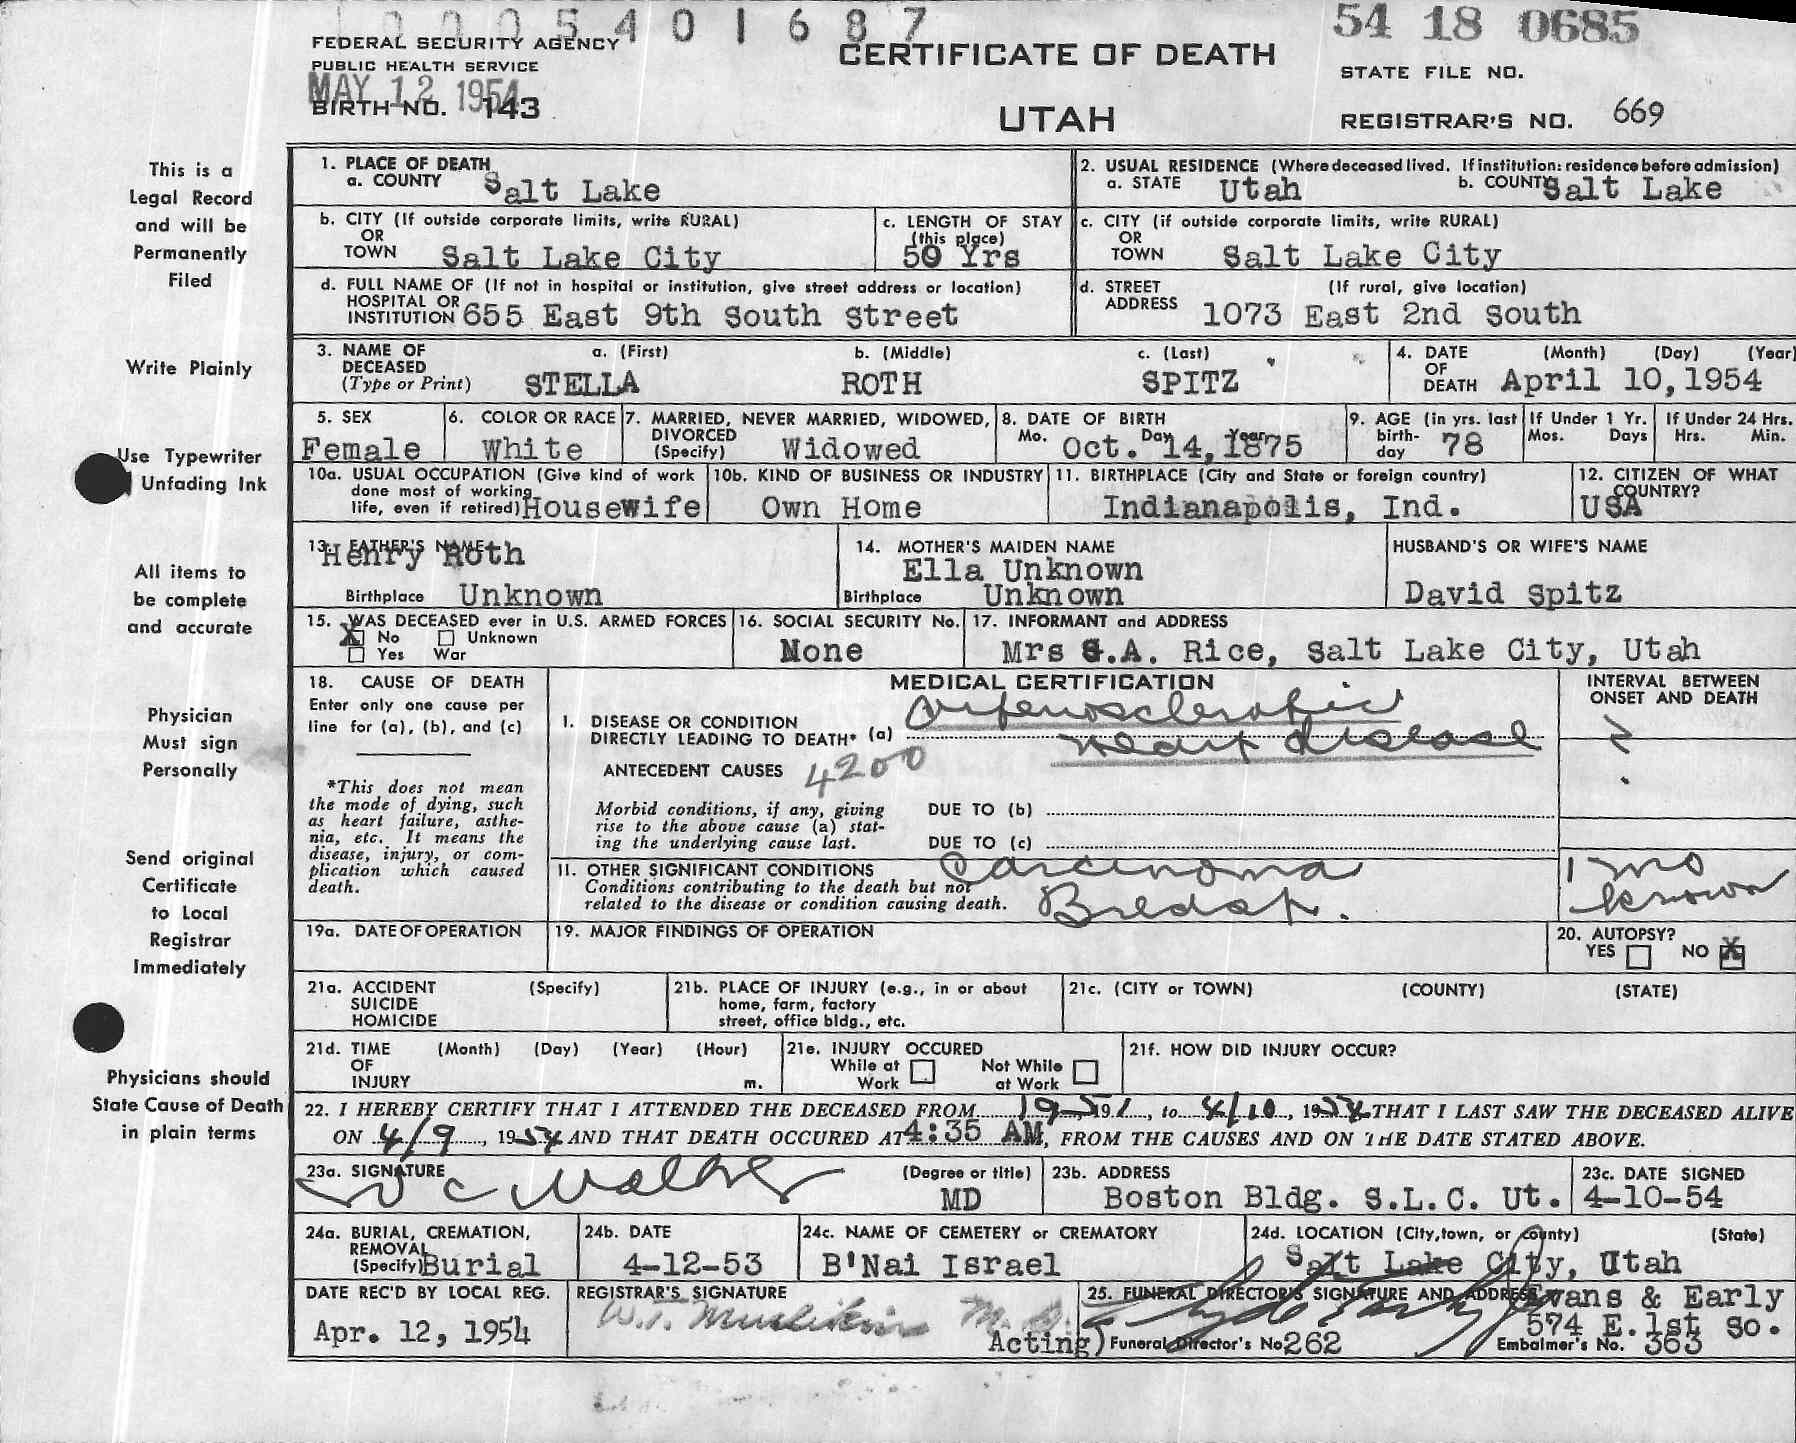 0005401687
54 18 0685
FEDERAL SECURITY AGENCY
PUBLIC HEALTH SERVICE
CERTIFICATE OF DEATH
STATE FILE NO.
MAY 12 1954
BIRTH NO. 143
UTAH
REGISTRAR'S NO. 669
This is a
Legal Record
and will be
Permanently
Filed
Write Plainly
Use Typewriter
Unfading Ink
All items to
be complete
and accurate
Physician
Must sign
Personally
Send original
Certificate
to Local
Registrar
Immediately
Physicians should
State Cause of Death
in plain terms
1. PLACE OF DEATH
a. COUNTY Salt Lake
2. USUAL RESIDENCE (Where deceased lived. If institution: residence before admission)
a. STATE Utah b. COUNTY Salt Lake
b. CITY (If outside corporate limits, write RURAL)
OR
TOWN Salt Lake City
c. LENGTH OF STAY
(this place)
50 Yrs
c. CITY (if outside corporate limits, write RURAL)
OR
TOWN Salt Lake City
d. FULL NAME OF (If not in hospital or institution, give street address or location)
HOSPITAL OR
INSTITUTION 655 East 9th South Street
d. STREET (If rural, give location)
ADDRESS 1073 East 2nd South
3. NAME OF a. (First) b. (Middle) c. (Last)
DECEASED
(Type or Print) STELLA ROTH SPITZ
4. DATE (Month) (Day) (Year)
OF
DEATH April 10, 1954
5. SEX
Female
6. COLOR OR RACE
White
7. MARRIED, NEVER MARRIED, WIDOWED,
DIVORCED
(Specify) Widowed
8. DATE OF BIRTH
Mo. Day Year
Oct. 14, 1875
9. AGE (in yrs. last
birth-
day 78
If Under 1 Yr.
Mos. Days
If Under 24 Hrs.
Hrs. Min.
10a. USUAL OCCUPATION (Give kind of work
done most of working
life, even if retired) Housewife
10b. KIND OF BUSINESS OR INDUSTRY
Own Home
11. BIRTHPLACE (City and State or foreign country)
Indianapolis, Ind.
12. CITIZEN OF WHAT
COUNTRY?
USA
13. FATHER'S NAME
Henry Roth
Birthplace Unknown
14. MOTHER'S MAIDEN NAME
Ella Unknown
Birthplace Unknown
HUSBAND'S OR WIFE'S NAME
David Spitz
15. WAS DECEASED ever in U.S. ARMED FORCES
X No Unknown
Yes War
16. SOCIAL SECURITY No.
None
17. INFORMANT and ADDRESS
Mrs S.A. Rice, Salt Lake City, Utah
18. CAUSE OF DEATH
Enter only one cause per
line for (a), (b), and (c)
*This does not mean
the mode of dying, such
as heart failure, asthe-
nia, etc. It means the
disease, injury, or com-
plication which caused
death.
MEDICAL CERTIFICATION
I. DISEASE OR CONDITION
DIRECTLY LEADING TO DEATH* (a) Arteriosclerotic
Heart disease
ANTECEDENT CAUSES 4200
Morbid conditions, if any, giving
rise to the above cause (a) stat-
ing the underlying cause last.
DUE TO (b)
DUE TO (c)
11. OTHER SIGNIFICANT CONDITIONS
Conditions contributing to the death but not
related to the disease or condition causing death.
Carcinoma
Breast.
INTERVAL BETWEEN
ONSET AND DEATH
?
1 mo
known
19a. DATE OF OPERATION
19. MAJOR FINDINGS OF OPERATION
20. AUTOPSY?
YES NO X
21a. ACCIDENT (Specify)
SUICIDE
HOMICIDE
21b. PLACE OF INJURY (e.g., in or about
home, farm, factory
street, office bldg., etc.
21c. (CITY or TOWN) (COUNTY) (STATE)
21d. TIME (Month) (Day) (Year) (Hour)
OF
INJURY m.
21e. INJURY OCCURED
While at Work
Not While at Work
21f. HOW DID INJURY OCCUR?
22. I HEREBY CERTIFY THAT I ATTENDED THE DECEASED FROM 1951, to 4/10, 1954 THAT I LAST SAW THE DECEASED ALIVE
ON 4/9, 1954 AND THAT DEATH OCCURED AT 4:35 AM, FROM THE CAUSES AND ON THE DATE STATED ABOVE.
23a. SIGNATURE (Degree or title)
W C Walker MD
23b. ADDRESS
Boston Bldg. S.L.C. Ut.
23c. DATE SIGNED
4-10-54
24a. BURIAL, CREMATION,
REMOVAL
(Specify) Burial
24b. DATE
4-12-53
24c. NAME OF CEMETERY or CREMATORY
B'Nai Israel
24d. LOCATION (City, town, or county) (State)
Salt Lake City, Utah
DATE REC'D BY LOCAL REG.
Apr. 12, 1954
REGISTRAR'S SIGNATURE
W.T. M.D.
Acting)
25. FUNERAL DIRECTOR'S SIGNATURE AND ADDRESS
Evans & Early
574 E. 1st So.
Funeral Director's No 262 Embalmer's No. 363